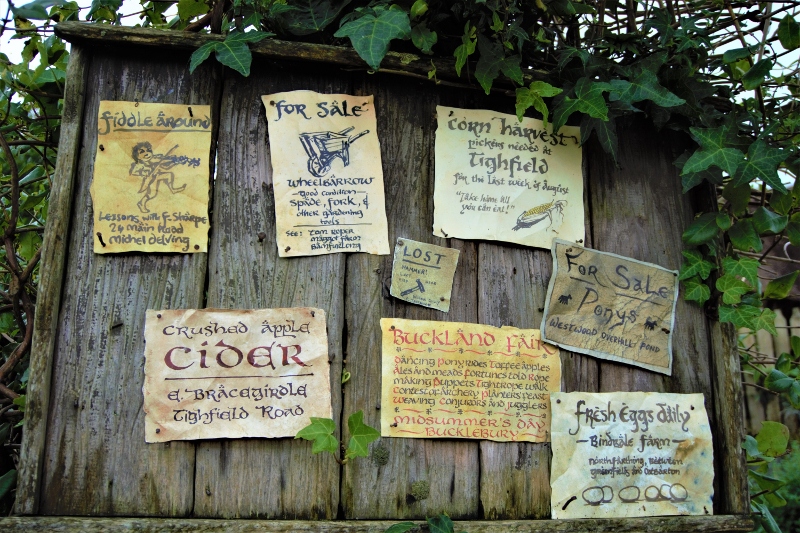 Fiddle Around
Lessons with F. Sharpe
24 main Road
michel delving
For Sale
Wheelbarrow
Good condition
Spade, Fork, &
other gardening
tools
See: Tom Roper
maggot farm
Bamfurlong
Corn Harvest
pickers needed at
Tighfield
for the last week of August
"Take home all
you can eat!"
LOST
HAMMER!
For Sale
Ponys
Westwood Overhill Pond
Crushed Apple
CIDER
E. Bracegirdle
Tighfield Road
Buckland Fair
Dancing Pony rides Toffee apples
Ales and meads Fortunes told Rope
making Puppets Tightrope walk
Contest of Archery Planters Feast
Weaving Conjurors and Jugglers
Midsummer's Day
Bucklebury
Fresh Eggs Daily
Bindbale Farm
Northfarthing,
Greenfields and Oatbarton